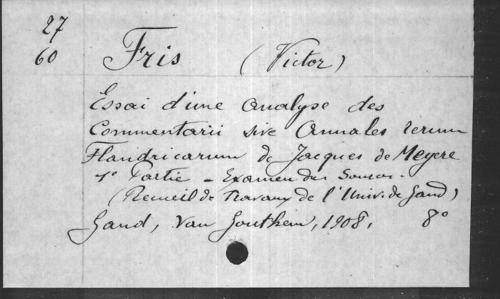 27
60
Fris (Victor)
Essai d'une analyse des
Commentarii sive Annales rerum
Flandricarum de Jacques de Meyere
1e Partie - Examen des Sources.
(Recueil de Travaux de l'Univ. de Gand)
Gand, Van Goethem, 1908, 8°